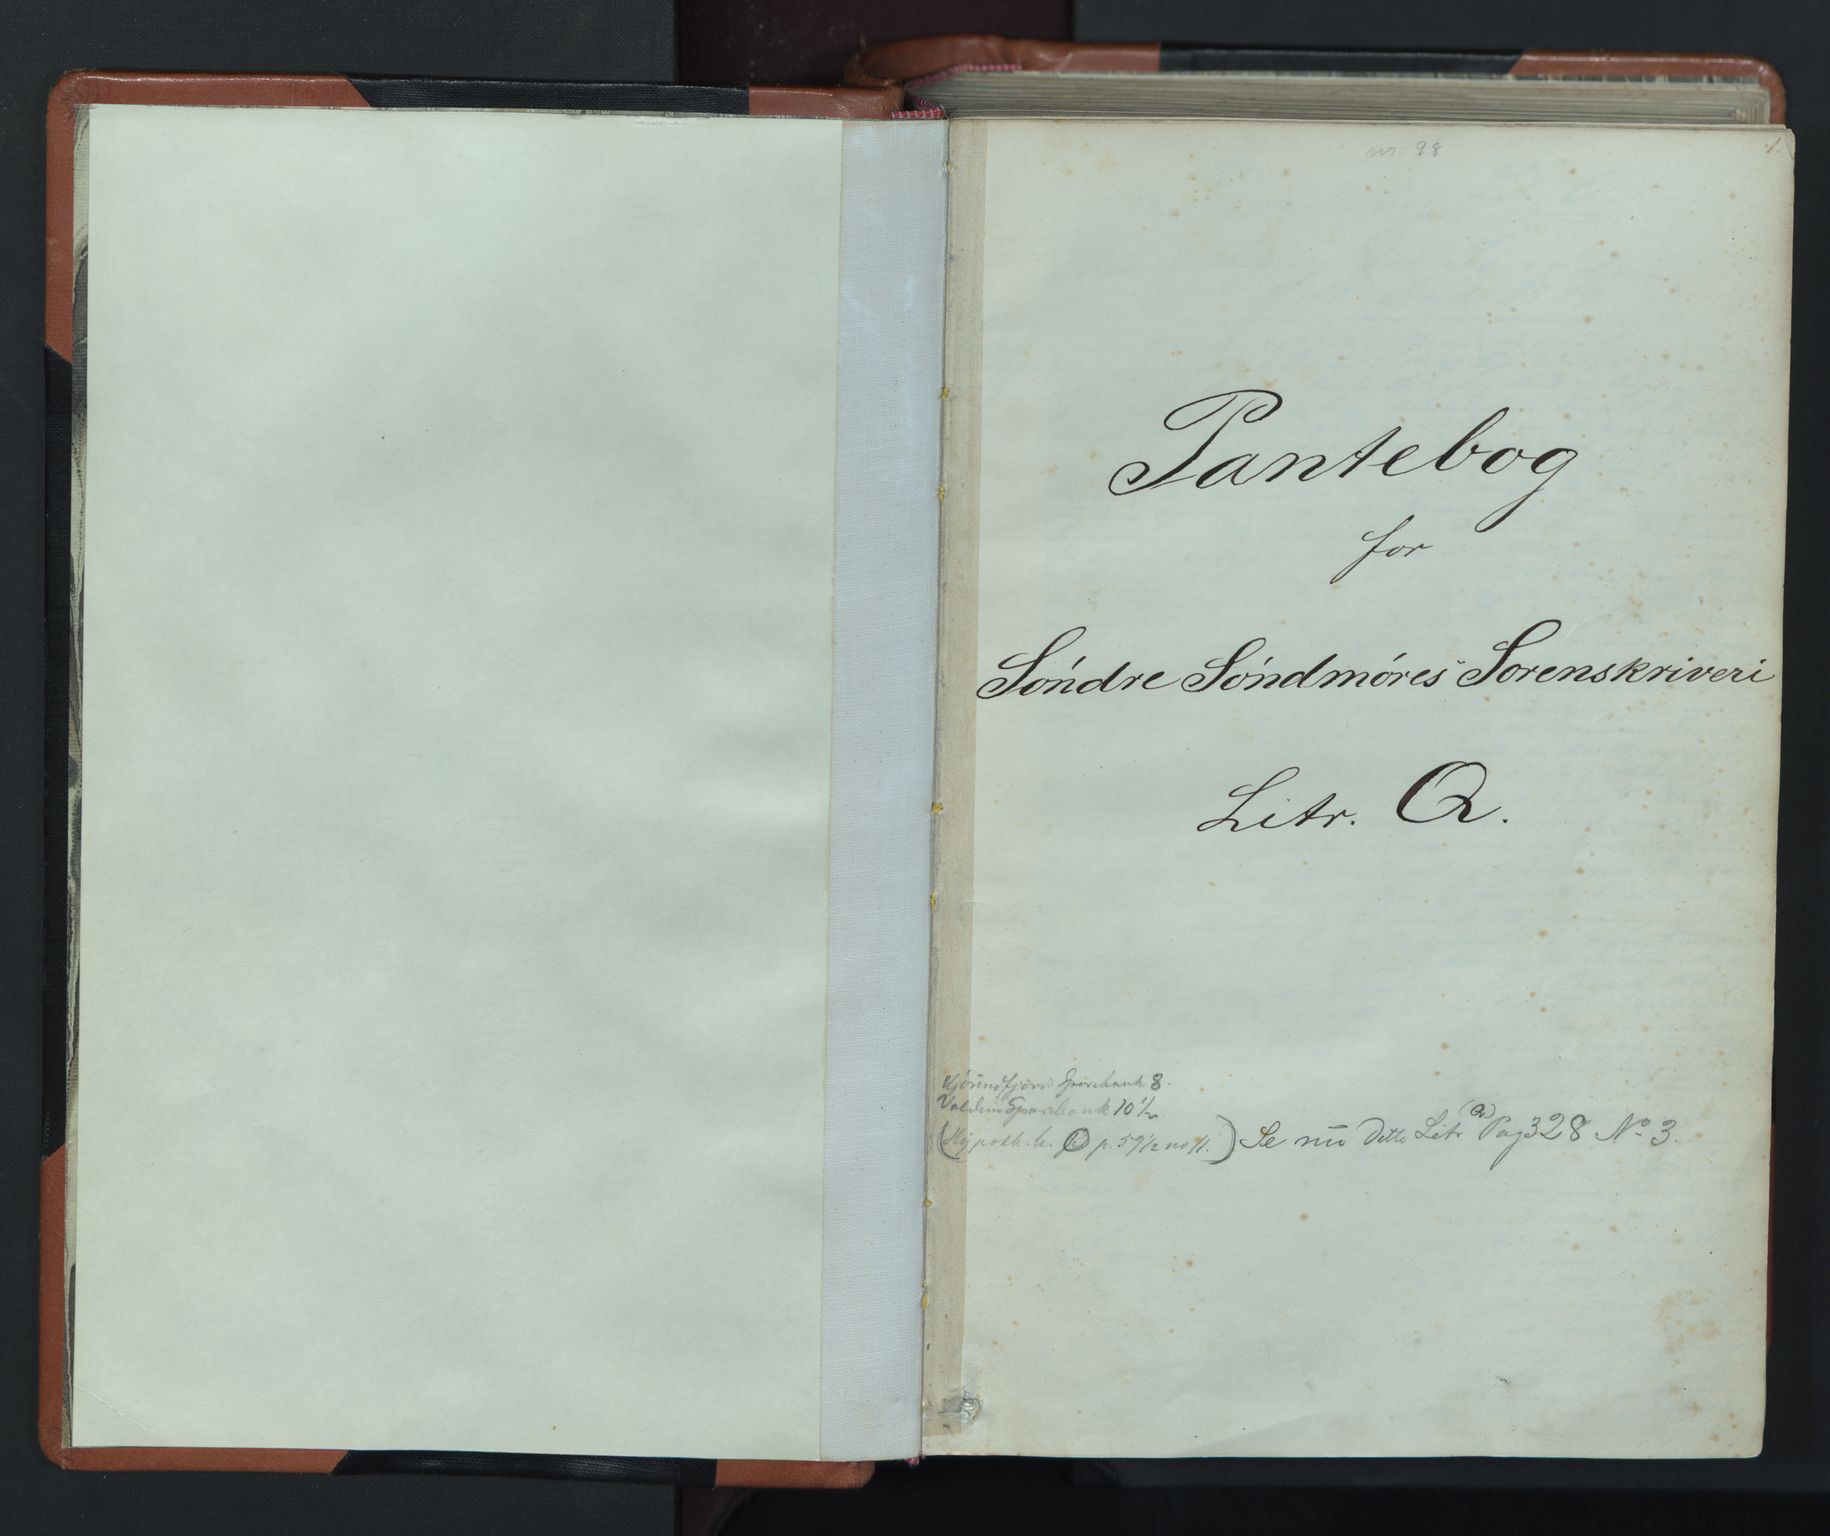 nr. 98
1.
Pantebog
for
Söndre Söndmöres Sorenskriveri
Litr. Q.
Sparebank 8.
Sparebank 10½
(Hypoth. h. p. 59½ no 1.) Se nu dette Litr (Q) Pag 328 No 3.